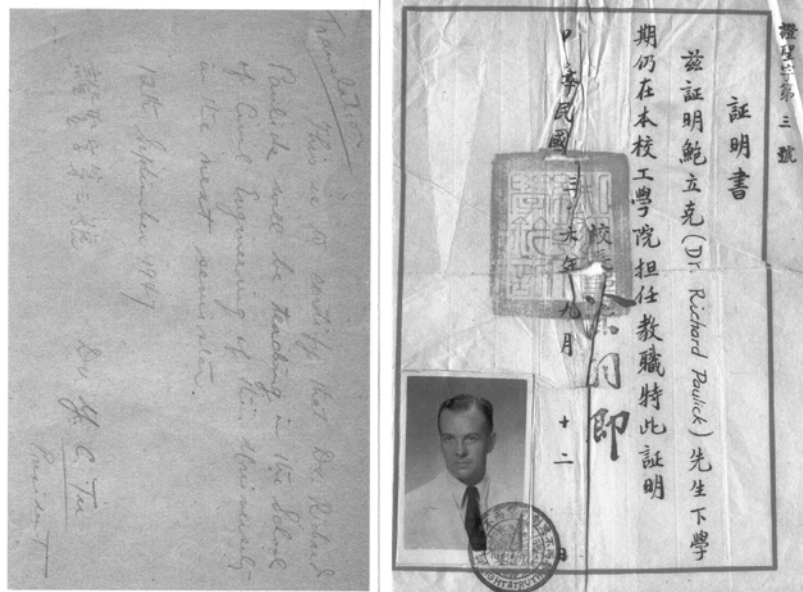 Translation
This is to certify that Dr. Richard
Paulick will be teaching in the School
of Civil Engineering of this University
in the next semester.
12th September 1947
Dr. Y. C. Tu
President
證聖字第三號
証明書
茲証明鮑立克(Dr. Richard Paulick)先生下學
期仍在本校工學院担任教職特此証明
校長涂羽卿
民國三十六年九月十二日
LIGHT & TRUTH